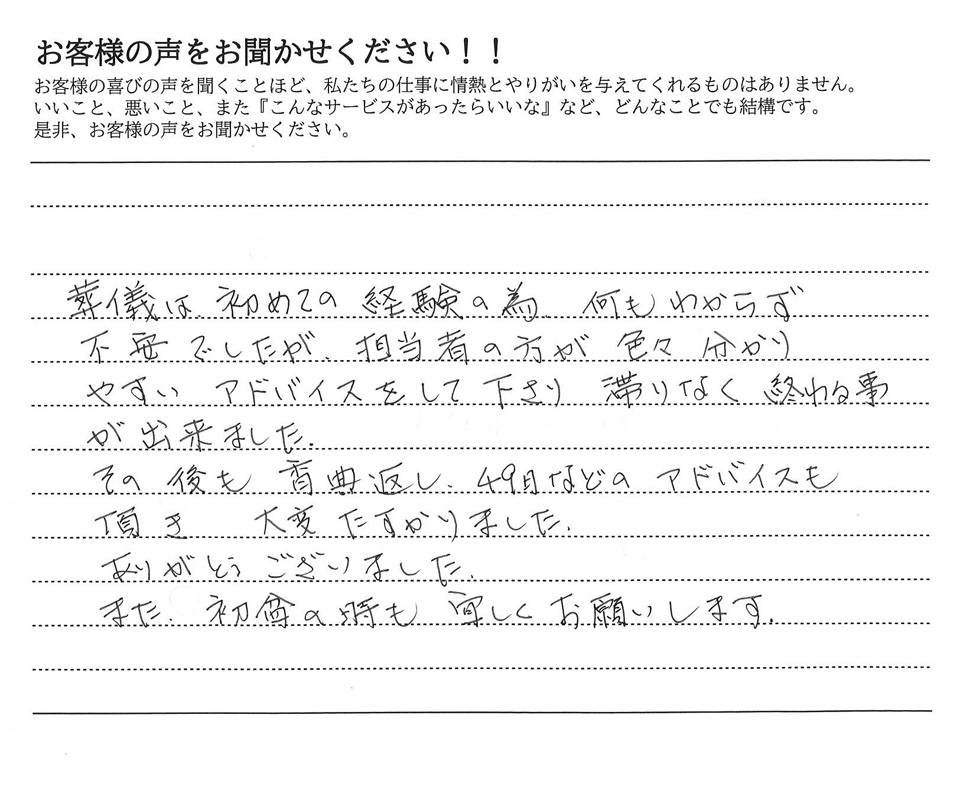 お客様の声をお聞かせください！！
お客様の喜びの声を聞くことほど、私たちの仕事に情熱とやりがいを与えてくれるものはありません。
いいこと、悪いこと、また『こんなサービスがあったらいいな』など、どんなことでも結構です。
是非、お客様の声をお聞かせください。
葬儀は、初めての経験の為、何もわからず
不安でしたが、担当者の方が色々分かり
やすいアドバイスをして下さり滞りなく終わる事
が出来ました。
その後も香典返し、49日などのアドバイスも
頂き 大変たすかりました。
ありがとうございました。
また、初盆の時も宜しくお願いします。